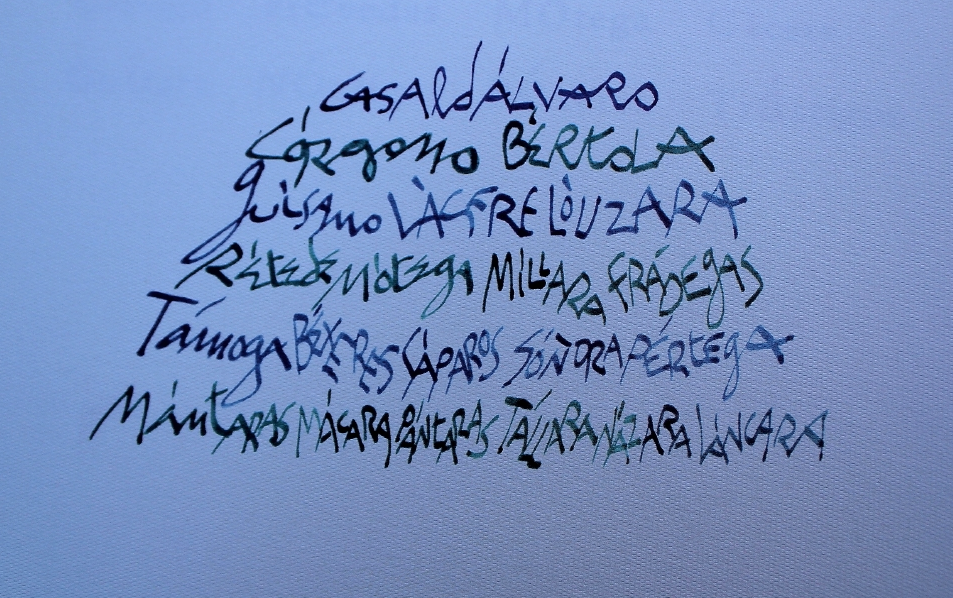 CASAldÁLVARO
Córgomo BÉRtoLA
guísamo
Rétede Nótega MILLARA FRÁDEgAS
Támoga BÉXERES CÁPAROS SÓÑORA PÉRTEgA
MántARAS MÁCARA PÁNtARAS TÁLLARA NÁZARA LÁNCARA